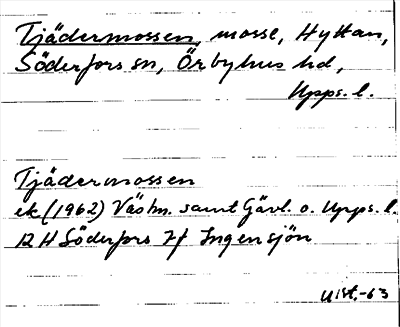 Tjädermossen, mosse, Hyttan,
Söderfors sn, Örbyhus hd,
Upps. l.
Tjädermossen
ek (1962) Västm. samt Gävl. o. Upps. l.
12 H Söderfors 7f Ingensjön
Utt.-63